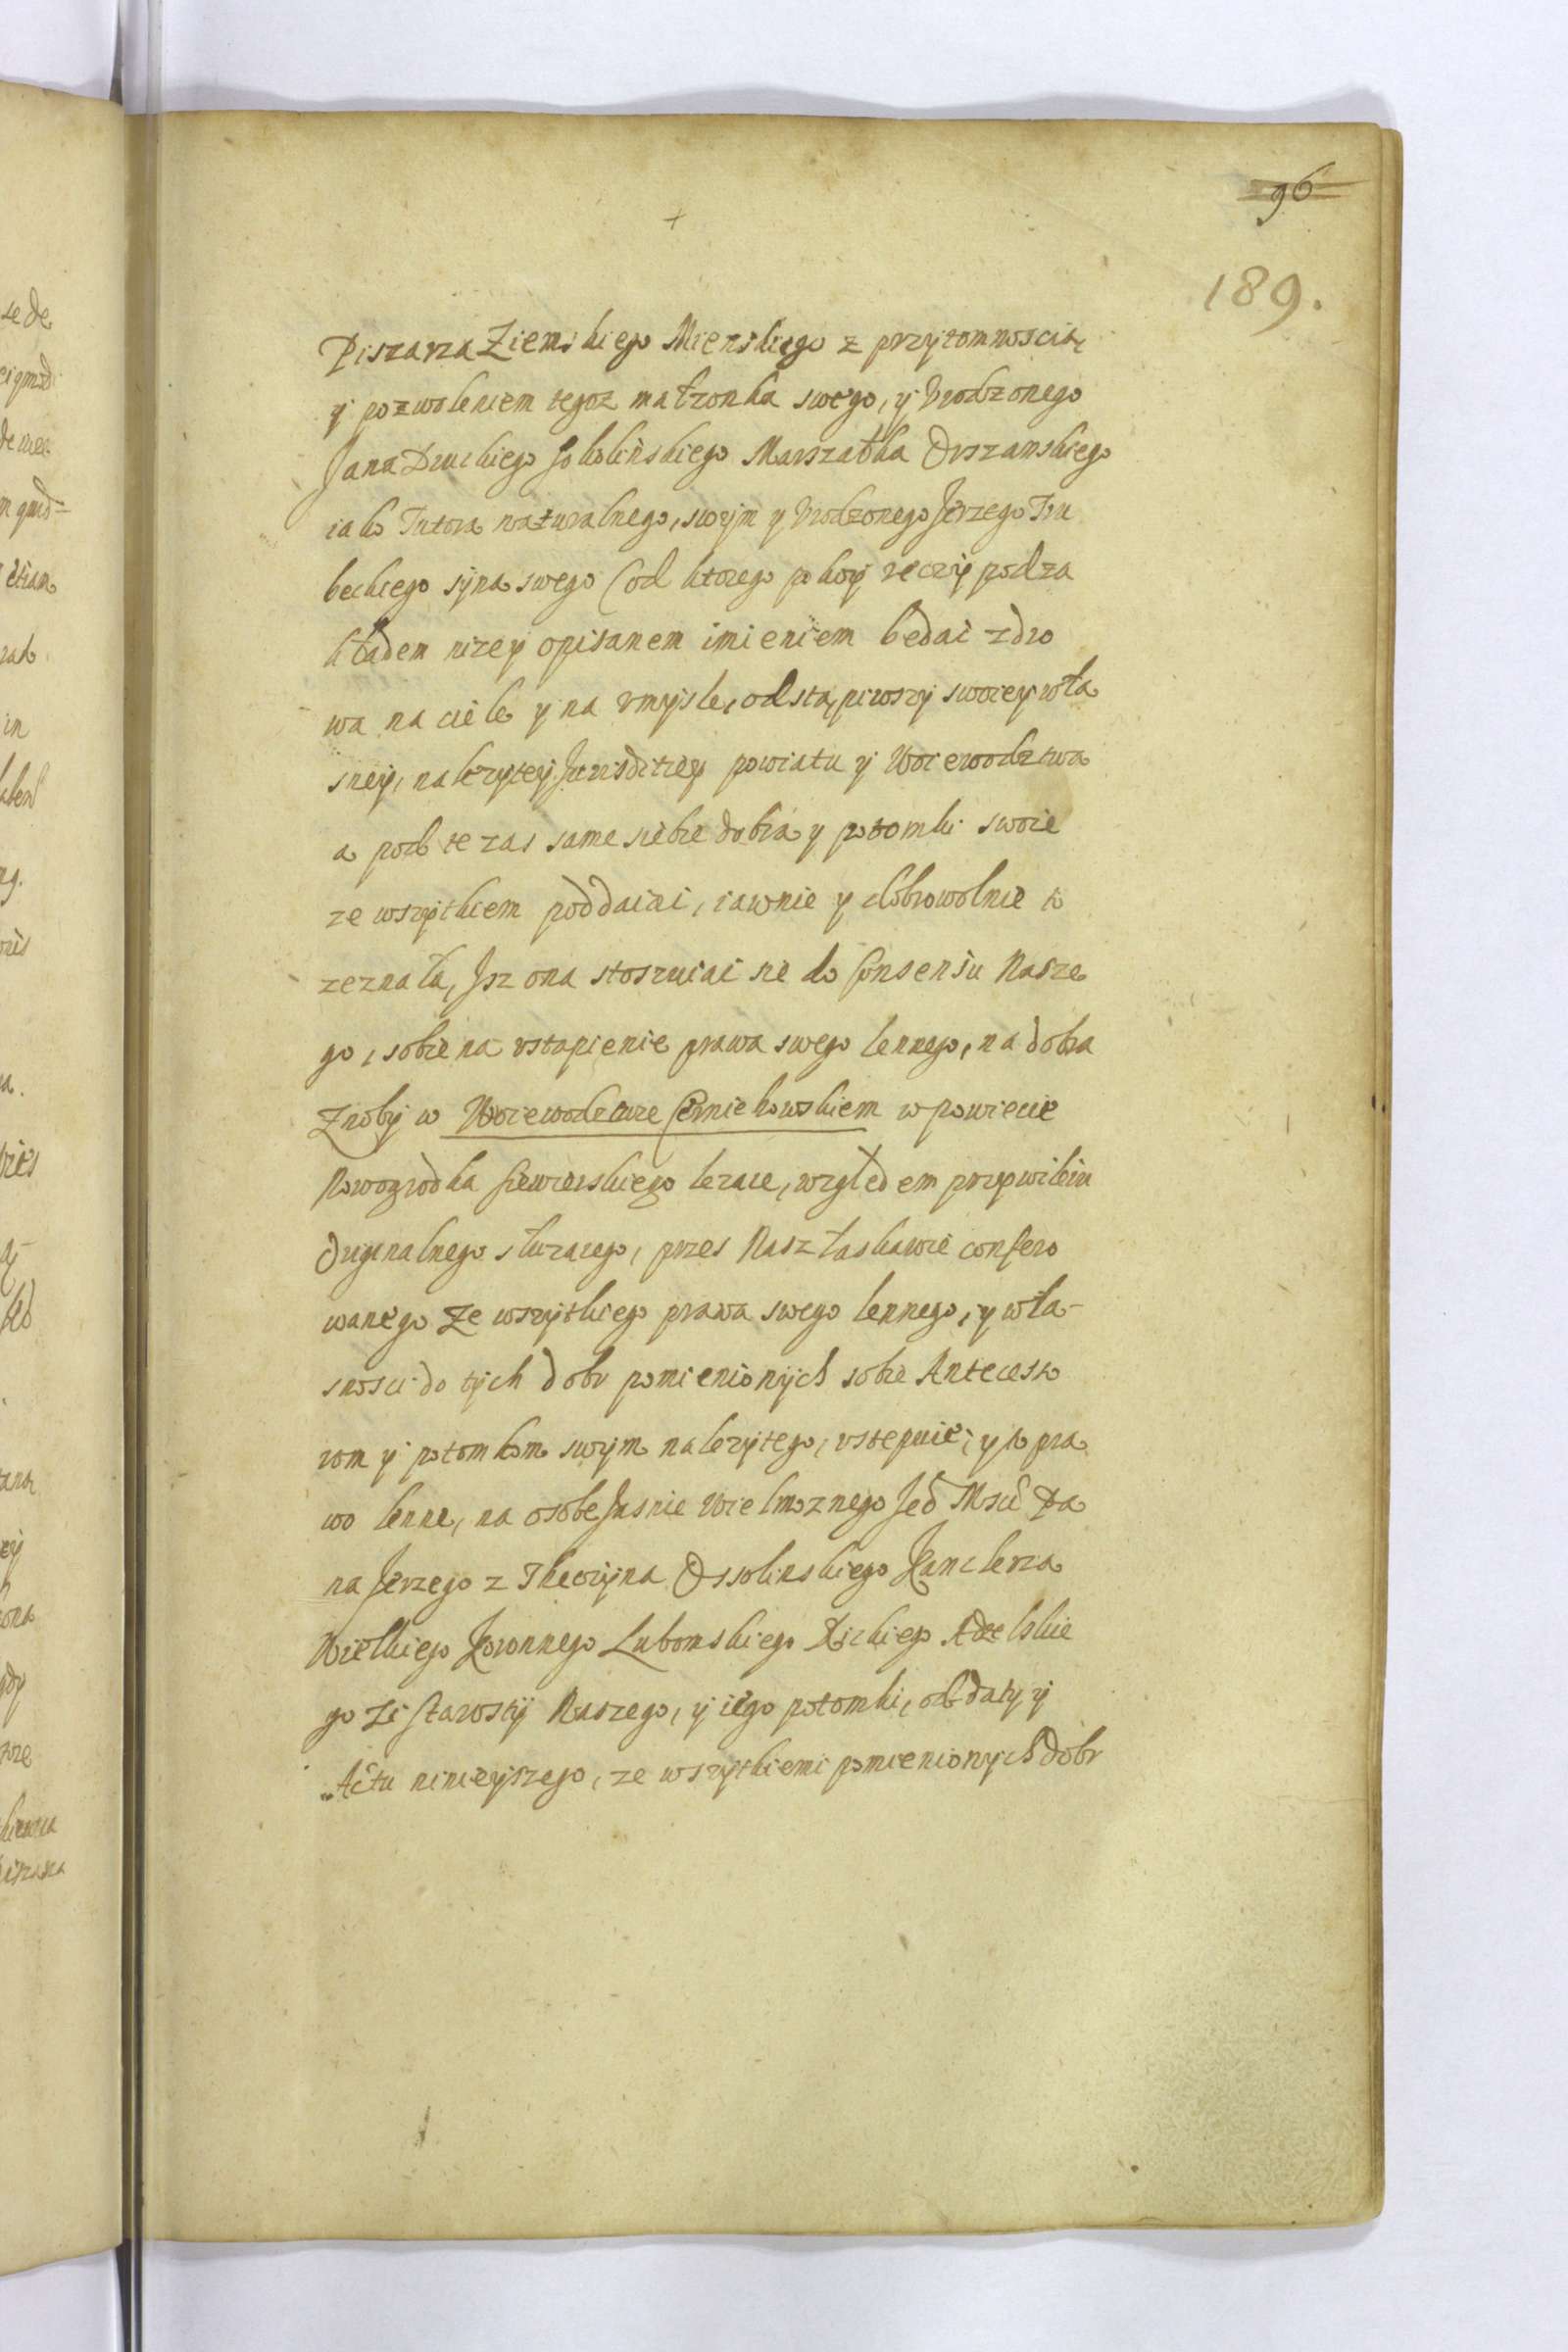 96
189.
Pisarza Ziemskiego Mienskiego z przytomnoscią
y pozwoleniem tegoz małzonka swego, y Vrodzonego
Jana Druckiego Sokolińskiego Marszałka Orszanskiego
iako Tutora naturalnego, swym y Vrodzonego Jerzego Tru
beckiego syna swego (od ktorego pokoy reczy podza
kładem nizey opisanem imieniem bedąc zdro
wa na ciele y na vmysle, odstąpiwszy swoiey wła
sney, nalezytey Jurisditiey powiatu y Woiewodztwa
a pod te zas same siebie dobra y potomki swoie
ze wszytkiem poddaiąc, iawnie y dobrowolnie to
zeznała, Jsz ona stosuiąc sie do Consensu Nasze
go, sobie na vstąpienie prawa swego lennego, na dobra
Znoby w Woiewodztwie Czerniehowskiem w powiecie
Nowogrodka Siewierskiego lezące, względem przywileiu
Originalnego słuzącego, przes Nasz łaskawie confero
wanego Ze wszytkiego prawa swego lennego, y wła-
snosci do tych dobr pomienionych sobie Antecesso
rom y potomkom swym nalezytego, vstepuie, y to pra
wo lenne, na osobe Jasnie Wielmoznego Jeo Msci Pa
na Jerzego z Theczyna Ossolinskiego Kanclerza
Wielkiego Koronnego Lubomskiego Rickiego Adzelskie
go zc Starosty Naszego, y iego potomki, od daty y
Actu ninieyszego, ze wszytkiemi pomienionych dobr